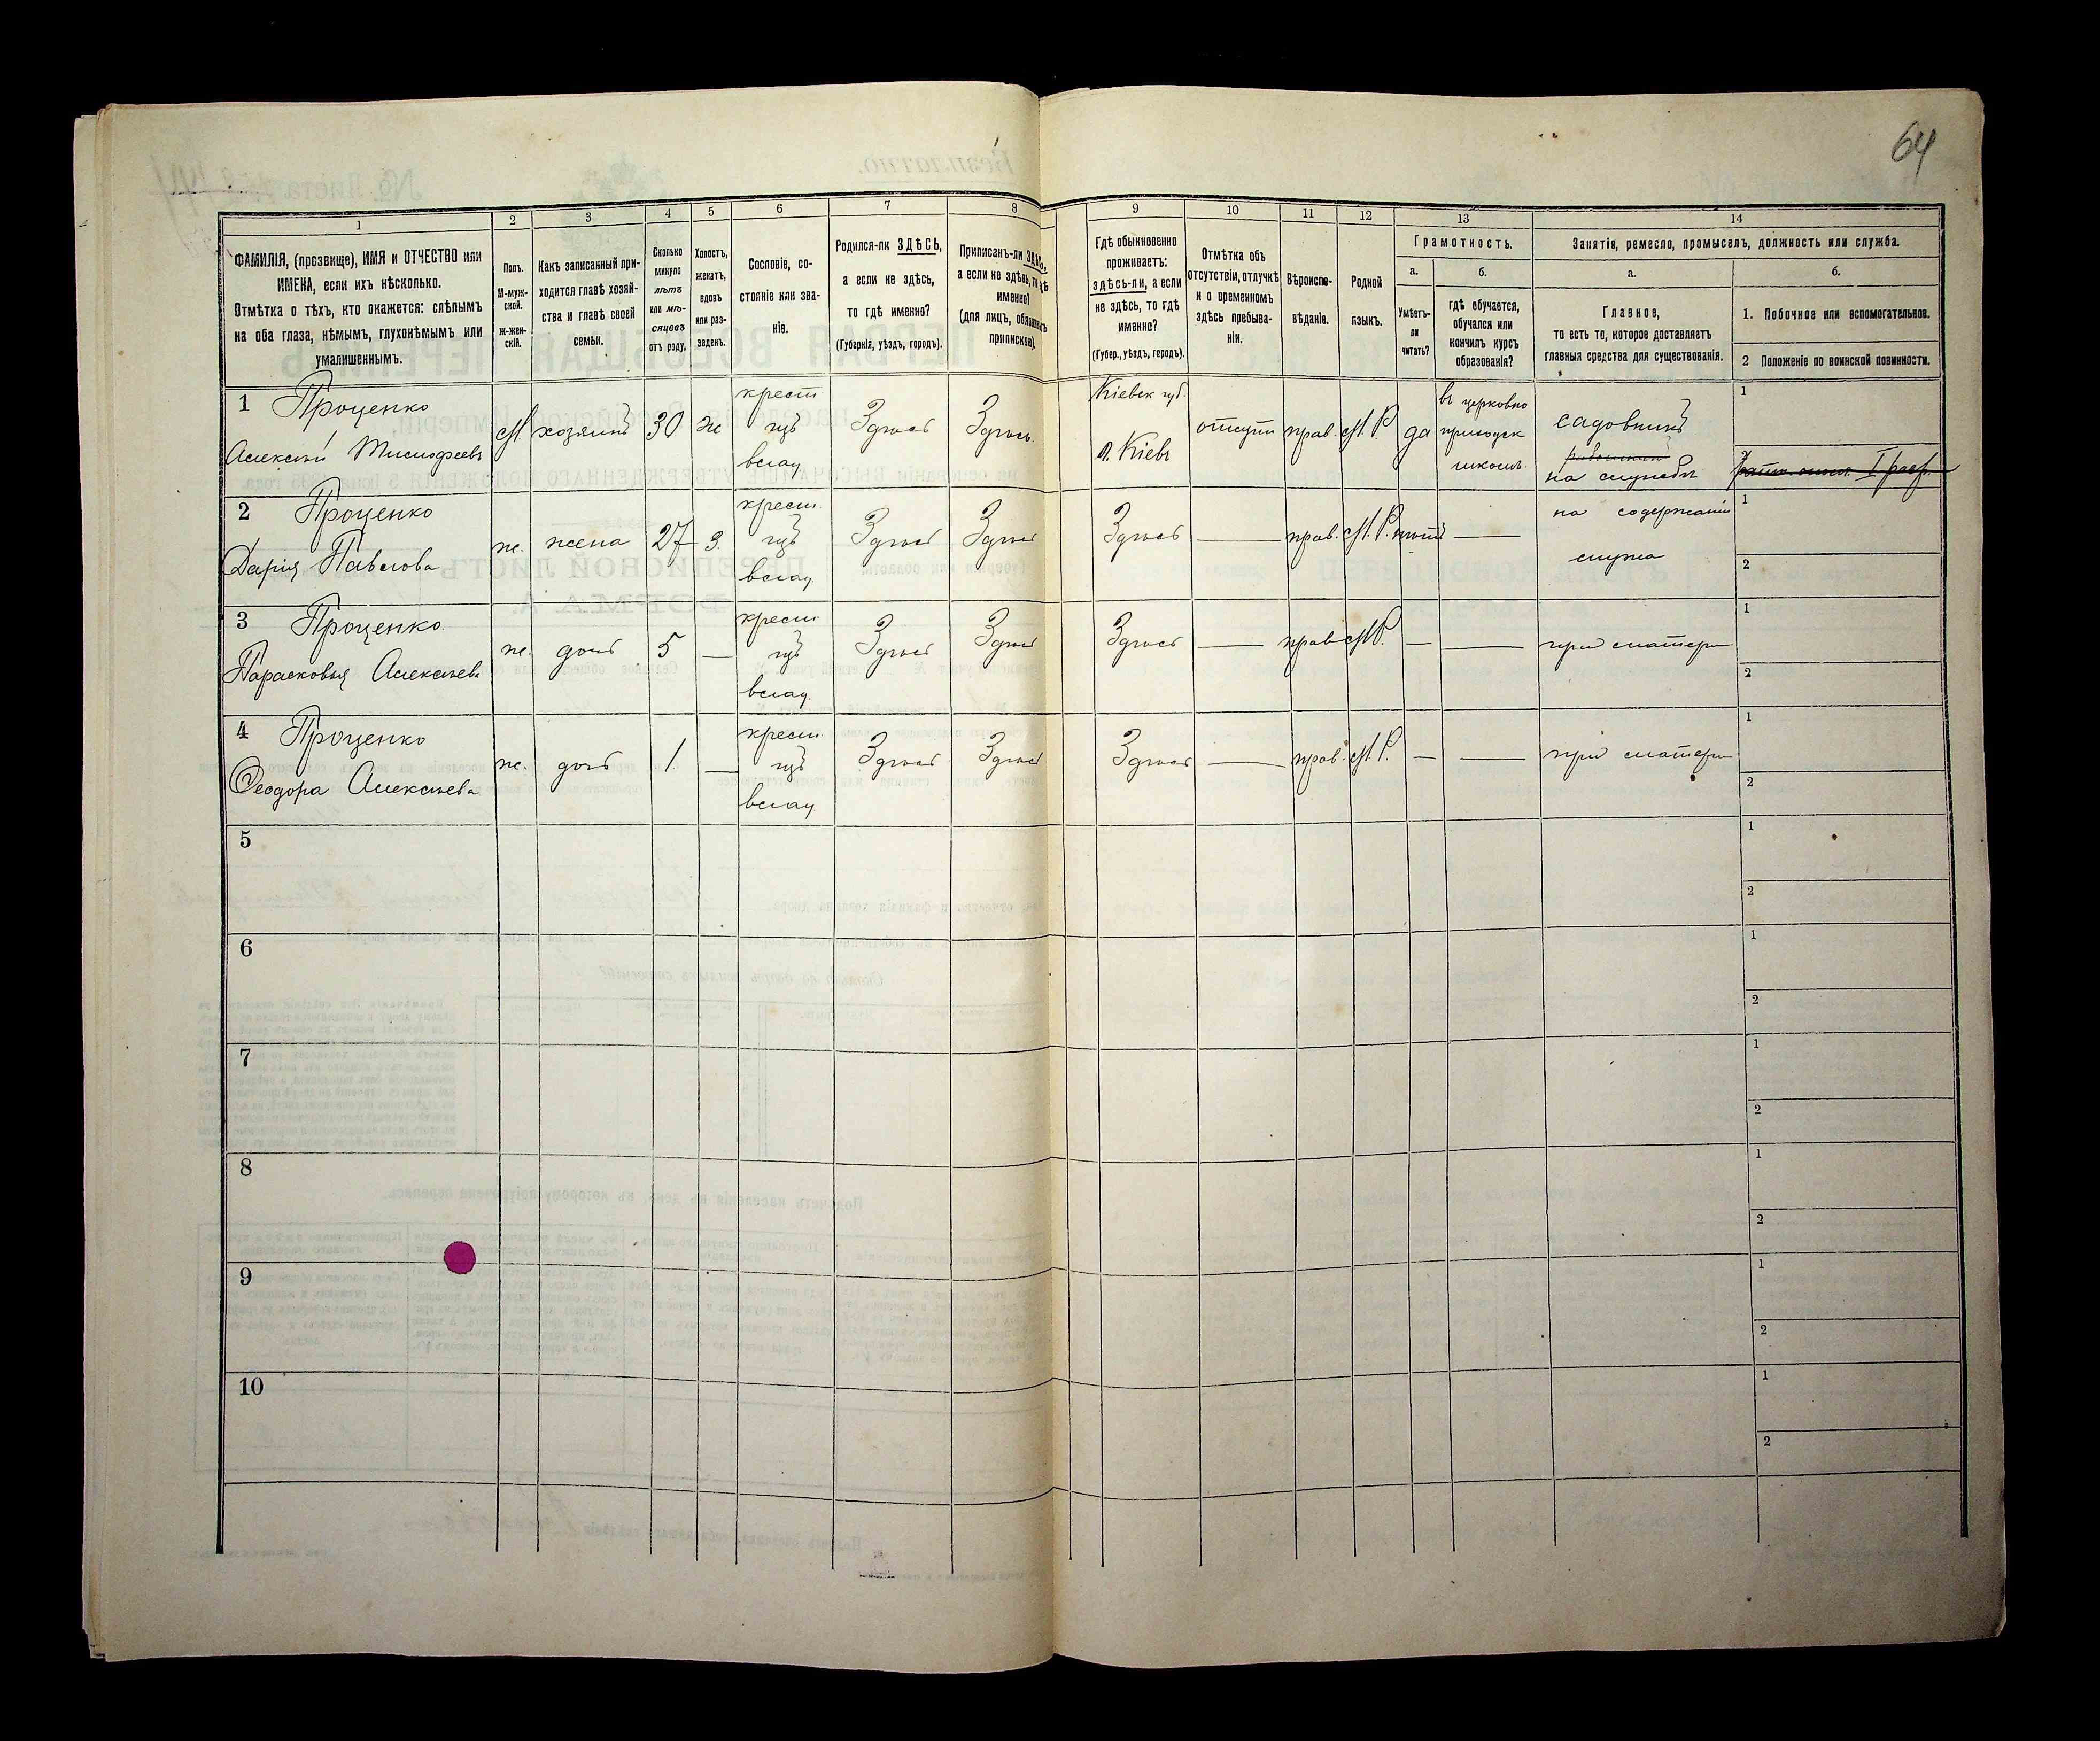 64
1 2 3 4 5 6 7 8 9 10 11 12 13 14
ФАМИЛІЯ, (прозвище), ИМЯ и ОТЧЕСТВО или
ИМЕНА, если ихъ нѣсколько.
Отмѣтка о тѣхъ, кто окажется: слѣпымъ
на оба глаза, нѣмымъ, глухонѣмымъ или
умалишеннымъ.
Полъ.
М-муж-
ской.
Ж-жен-
скій.
Какъ записанный при-
ходится главѣ хозяй-
ства и главѣ своей
семьи.
Сколько
минуло
лѣтъ
или мѣ-
сяцевъ
отъ роду.
Холостъ,
женатъ,
вдовъ
или раз-
веденъ.
Сословіе, со-
стояніе или зва-
ніе.
Родился-ли ЗДѢСЬ,
а если не здѣсь,
то гдѣ именно?
(Губернія, уѣздъ, городъ).
Приписанъ-ли ЗДѢСЬ,
а если не здѣсь, то гдѣ
именно?
(для лицъ, обязанныхъ
припискою).
Гдѣ обыкновенно
проживаетъ:
здѣсь-ли, а если
не здѣсь, то гдѣ
именно?
(Губер., уѣздъ, городъ).
Отмѣтка объ
отсутствіи, отлучкѣ
и о временномъ
здѣсь пребыва-
ніи.
Вѣроиспо-
вѣданіе.
Родной
языкъ.
Грамотность.
а. б.
Умѣетъ-
ли
читать?
гдѣ обучается,
обучался или
кончилъ курсъ
образованія?
Занятіе, ремесло, промыселъ, должность или служба.
а. б.
Главное,
то есть то, которое доставляетъ
главныя средства для существованія.
1. Побочное или вспомогательное.
2 Положеніе по воинской повинности.
1 Проценко
Алексѣй Тимофеевъ
М хозяинъ 30 ж
крест
изъ
влад.
Здѣсь Здѣсь.
Кіевск губ.
г. Кіевъ
отлуч прав. М. Р. да
въ церковно
приходск
школѣ.
садовникъ
на службѣ
1
2
2 Проценко
Дарія Павлова
ж. жена 27 з.
крест.
изъ
влад.
Здѣсь Здѣсь Здѣсь — прав. М. Р. нѣтъ —
на содержаніи
мужа
1
2
3 Проценко
Парасковья Алексѣева
ж. дочь 5 —
крест
изъ
влад.
Здѣсь Здѣсь Здѣсь — прав М Р. — — при матери
1
2
4 Проценко
Ѳеодора Алексѣева
ж. дочь 1. —
крест.
изъ
влад.
Здѣсь Здѣсь Здѣсь — прав. М. Р. — — при матери
1
2
5
1
2
6
1
2
7
1
2
8
1
2
9
1
2
10
1
2